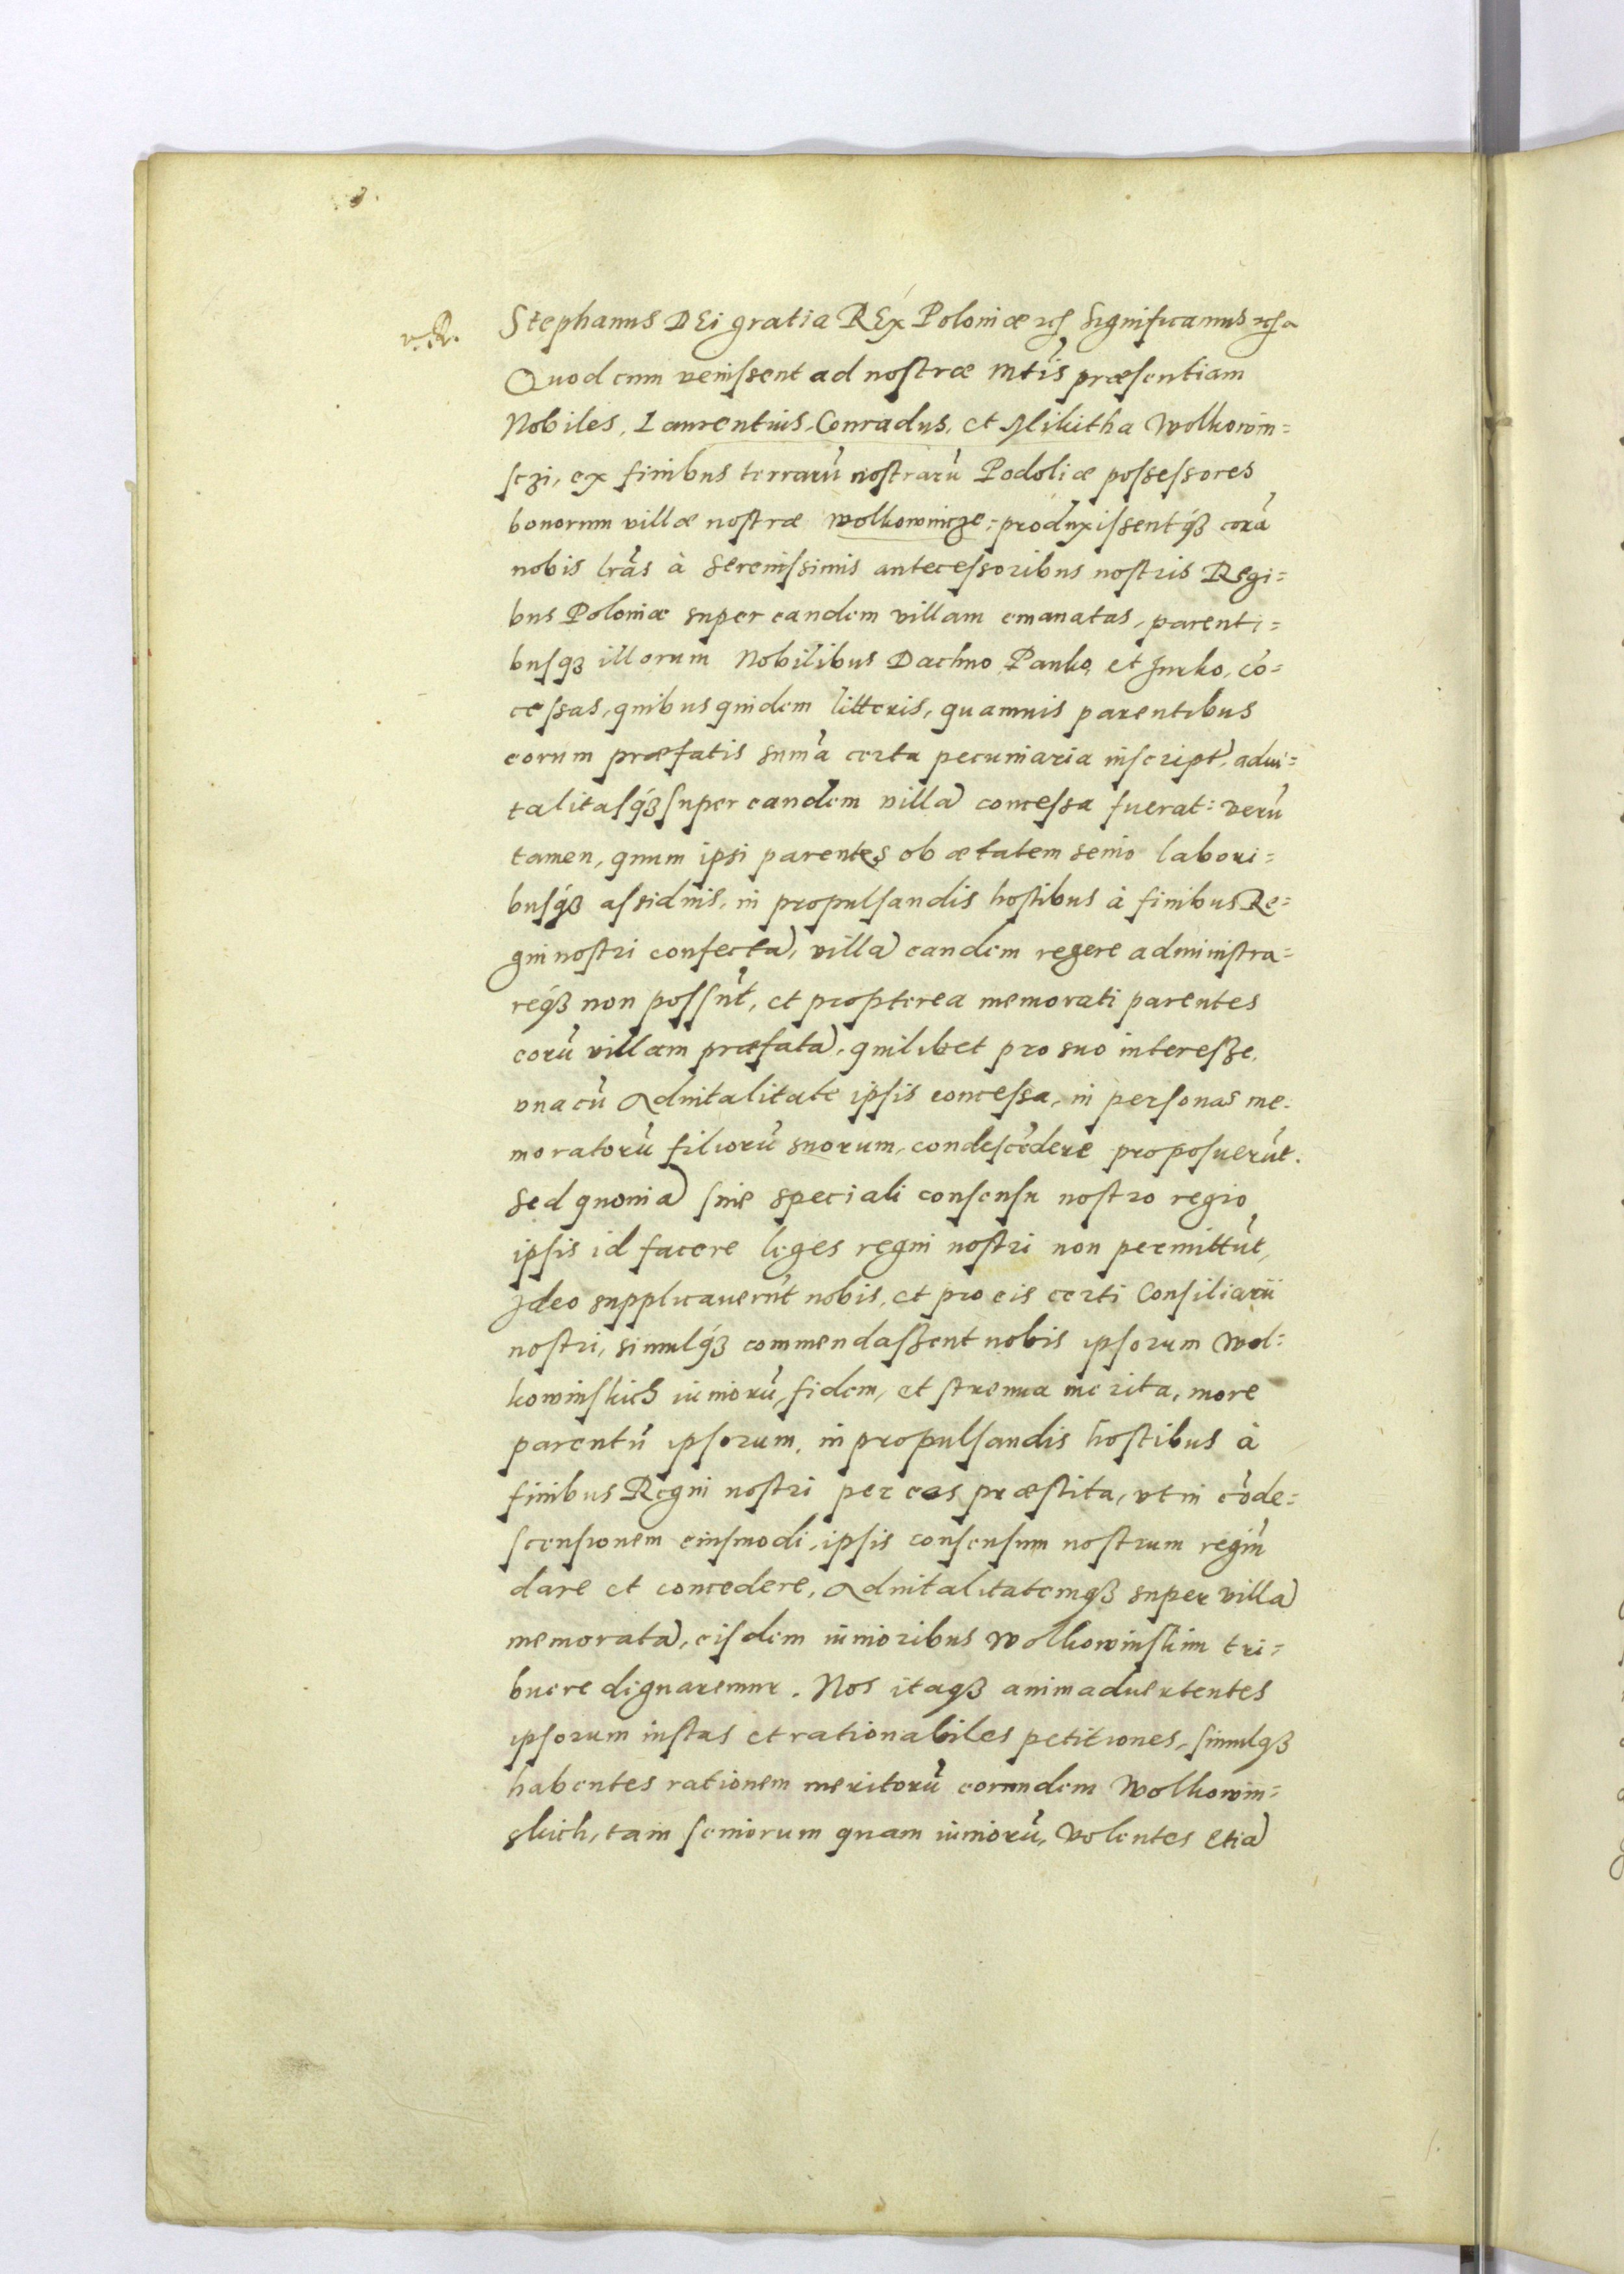 Stephanus DEi gratia REx Poloniæ etc Significamus etc
Quod cum venissent ad nostræ Mtis præsentiam
Nobiles, Laurentius, Conradus, et Mikitha Wolkowin=
sczi, ex finibus terrarū nostrarū Podoliæ possessores
bonorum villæ nostræ Wolkowincze: produxissentq́ꝫ corā
nobis lrās à Serenissimis antecessoribus nostris Regi=
bus Poloniæ super eandem villam emanatas, parenti=
busqꝫ illorum Nobilibus Dachno, Panko, et Jurko, cō=
cessas, quibus quidem litteris, quamuis parentibus
eorum præfatis sum̄a certa pecuniaria inscript̄, adui=
talitasq́ꝫ super eandem villā concessa fuerat: verū
tamen, quum ipsi parentes ob ætatem senio labori=
busq́ꝫ assiduis, in propulsandis hostibus à finibus Re=
gni nostri confectā, villā eandem regere administra=
req́ꝫ non possūt, et propterea memorati parentes
eorū villam præfatā, quilibet pro suo interesse,
vna cū aduitalitate ipsis concessa, in personas me=
moratorū filiorū suorum, condescēdere proposuerūt.
Sed quoniā sine speciali consensu nostro regio
ipsis id facere leges regni nostri non permittūt,
Ideo supplicauerūt nobis, et pro eis certi Consiliarii
nostri, simulq́ꝫ commendassent nobis ipsorum Wol=
kowinskich iuniorū, fidem, et strenua merita, more
parentū ipsorum, in propulsandis hostibus à
finibus Regni nostri per eos præstita, vt in cōde=
scensionem eiusmodi, ipsis consensum nostrum regiū
dare et concedere, aduitalitatemqꝫ super villā
memoratā, eisdem iunioribus Wolkowinskim tri=
buere dignaremur. Nos itaqꝫ animaduertentes
ipsorum iustas et rationabiles petitiones, simulqꝫ
habentes rationem meritorū eorundem Wolkowin=
skich, tam seniorum quam iuniorū, Volentes etiā